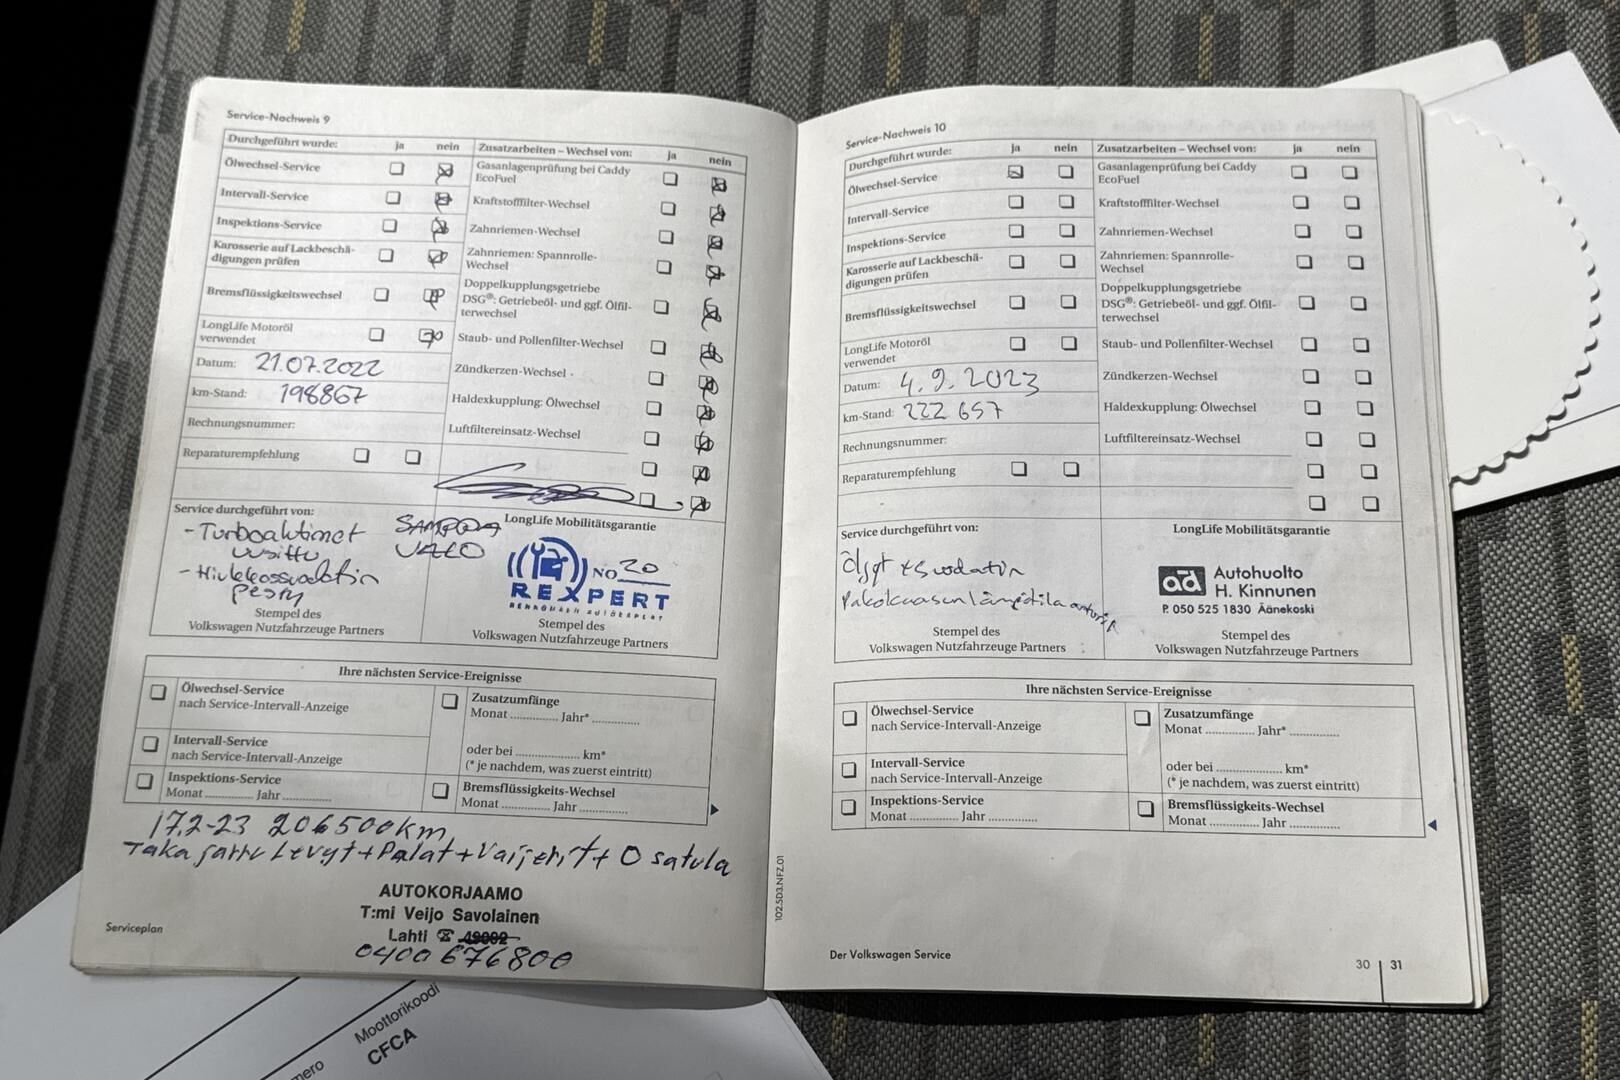 Service-Nachweis 9
Durchgeführt wurde: ja nein
Ölwechsel-Service
Intervall-Service
Inspektions-Service
Karosserie auf Lackbeschä-
digungen prüfen
Bremsflüssigkeitswechsel
LongLife Motoröl
verwendet
Datum: 21.07.2022
km-Stand: 198867
Rechnungsnummer:
Reparaturempfehlung
Zusatzarbeiten – Wechsel von: ja nein
Gasanlagenprüfung bei Caddy
EcoFuel
Kraftstofffilter-Wechsel
Zahnriemen-Wechsel
Zahnriemen: Spannrolle-
Wechsel
Doppelkupplungsgetriebe
DSG®: Getriebeöl- und ggf. Ölfil-
terwechsel
Staub- und Pollenfilter-Wechsel
Zündkerzen-Wechsel
Haldexkupplung: Ölwechsel
Luftfiltereinsatz-Wechsel
Service durchgeführt von:
- Turboahtimet
uusittu
- Hiukkassuodatin
pesty
Stempel des
Volkswagen Nutzfahrzeuge Partners
LongLife Mobilitätsgarantie
NO 20
REXPERT
Stempel des
Volkswagen Nutzfahrzeuge Partners
Ihre nächsten Service-Ereignisse
Ölwechsel-Service
nach Service-Intervall-Anzeige
Intervall-Service
nach Service-Intervall-Anzeige
Inspektions-Service
Monat ............... Jahr ...............
Zusatzumfänge
Monat ............... Jahr* ...............
oder bei ............... km*
(* je nachdem, was zuerst eintritt)
Bremsflüssigkeits-Wechsel
Monat ............... Jahr ...............
17.2-23 206500km
Taka jarru Levyt+Palat+Vaijerit+O satula
AUTOKORJAAMO
T:mi Veijo Savolainen
Lahti ☎ 49092
0400 676800
Serviceplan
Service-Nachweis 10
Durchgeführt wurde: ja nein
Ölwechsel-Service
Intervall-Service
Inspektions-Service
Karosserie auf Lackbeschä-
digungen prüfen
Bremsflüssigkeitswechsel
LongLife Motoröl
verwendet
Datum: 4.9.2023
km-Stand: 222 657
Rechnungsnummer:
Reparaturempfehlung
Zusatzarbeiten – Wechsel von: ja nein
Gasanlagenprüfung bei Caddy
EcoFuel
Kraftstofffilter-Wechsel
Zahnriemen-Wechsel
Zahnriemen: Spannrolle-
Wechsel
Doppelkupplungsgetriebe
DSG®: Getriebeöl- und ggf. Ölfil-
terwechsel
Staub- und Pollenfilter-Wechsel
Zündkerzen-Wechsel
Haldexkupplung: Ölwechsel
Luftfiltereinsatz-Wechsel
Service durchgeführt von:
Öljyt + Suodatin
Pakokaasun lämpötila anturi
Stempel des
Volkswagen Nutzfahrzeuge Partners
LongLife Mobilitätsgarantie
ad Autohuolto
H. Kinnunen
P. 050 525 1830 Äänekoski
Stempel des
Volkswagen Nutzfahrzeuge Partners
Ihre nächsten Service-Ereignisse
Ölwechsel-Service
nach Service-Intervall-Anzeige
Intervall-Service
nach Service-Intervall-Anzeige
Inspektions-Service
Monat ............... Jahr ...............
Zusatzumfänge
Monat ............... Jahr* ...............
oder bei ............... km*
(* je nachdem, was zuerst eintritt)
Bremsflüssigkeits-Wechsel
Monat ............... Jahr ...............
102.5D3.NFZ.01
Der Volkswagen Service
30 31
Moottorikoodi
CFCA